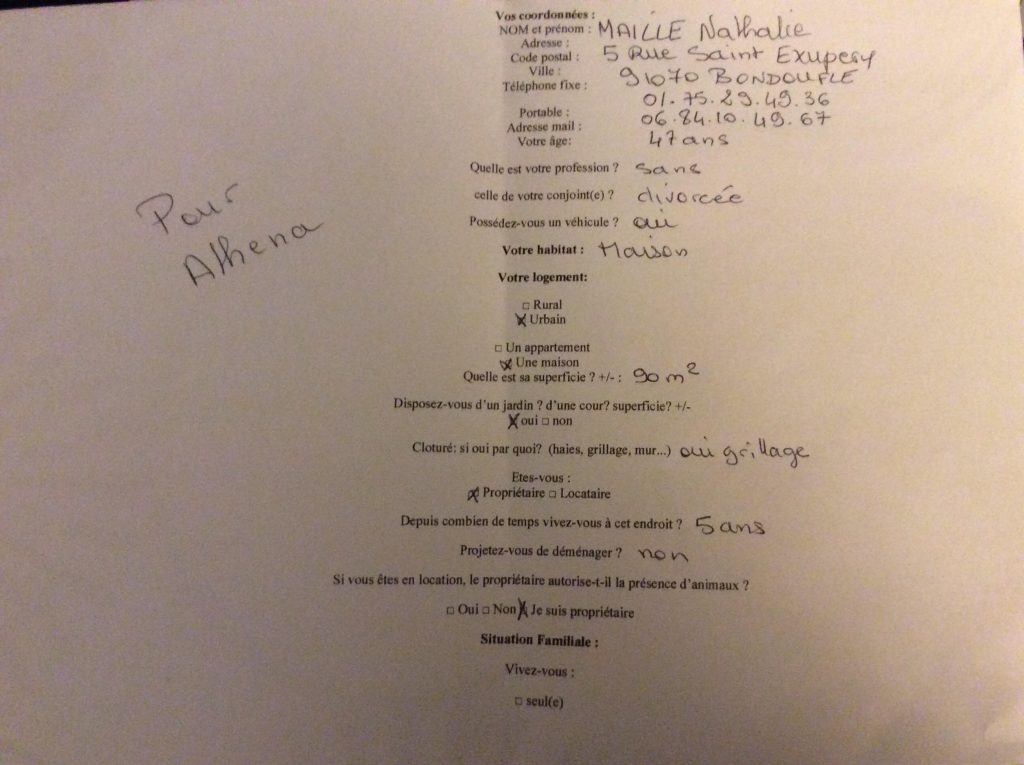 Vos coordonnées :
NOM et prénom : MAILLE Nathalie
Adresse :
Code postal : 5 Rue Saint Exupery
Ville : 91070 BONDOUFLE
Téléphone fixe : 01.75.29.49.36
Portable : 06.84.10.49.67
Adresse mail :
Votre âge: 47 ans
Quelle est votre profession ? sans
celle de votre conjoint(e) ? divorcée
Possédez-vous un véhicule ? oui
Pour
Athena
Votre habitat : Maison
Votre logement:
□ Rural
☒ Urbain
□ Un appartement
☒ Une maison
Quelle est sa superficie ? +/- : 90 m²
Disposez-vous d'un jardin ? d'une cour? superficie? +/-
☒ oui □ non
Cloturé: si oui par quoi? (haies, grillage, mur...) oui grillage
Etes-vous :
☒ Propriétaire □ Locataire
Depuis combien de temps vivez-vous à cet endroit ? 5 ans
Projetez-vous de déménager ? non
Si vous êtes en location, le propriétaire autorise-t-il la présence d'animaux ?
□ Oui □ Non ☒ Je suis propriétaire
Situation Familiale :
Vivez-vous :
□ seul(e)